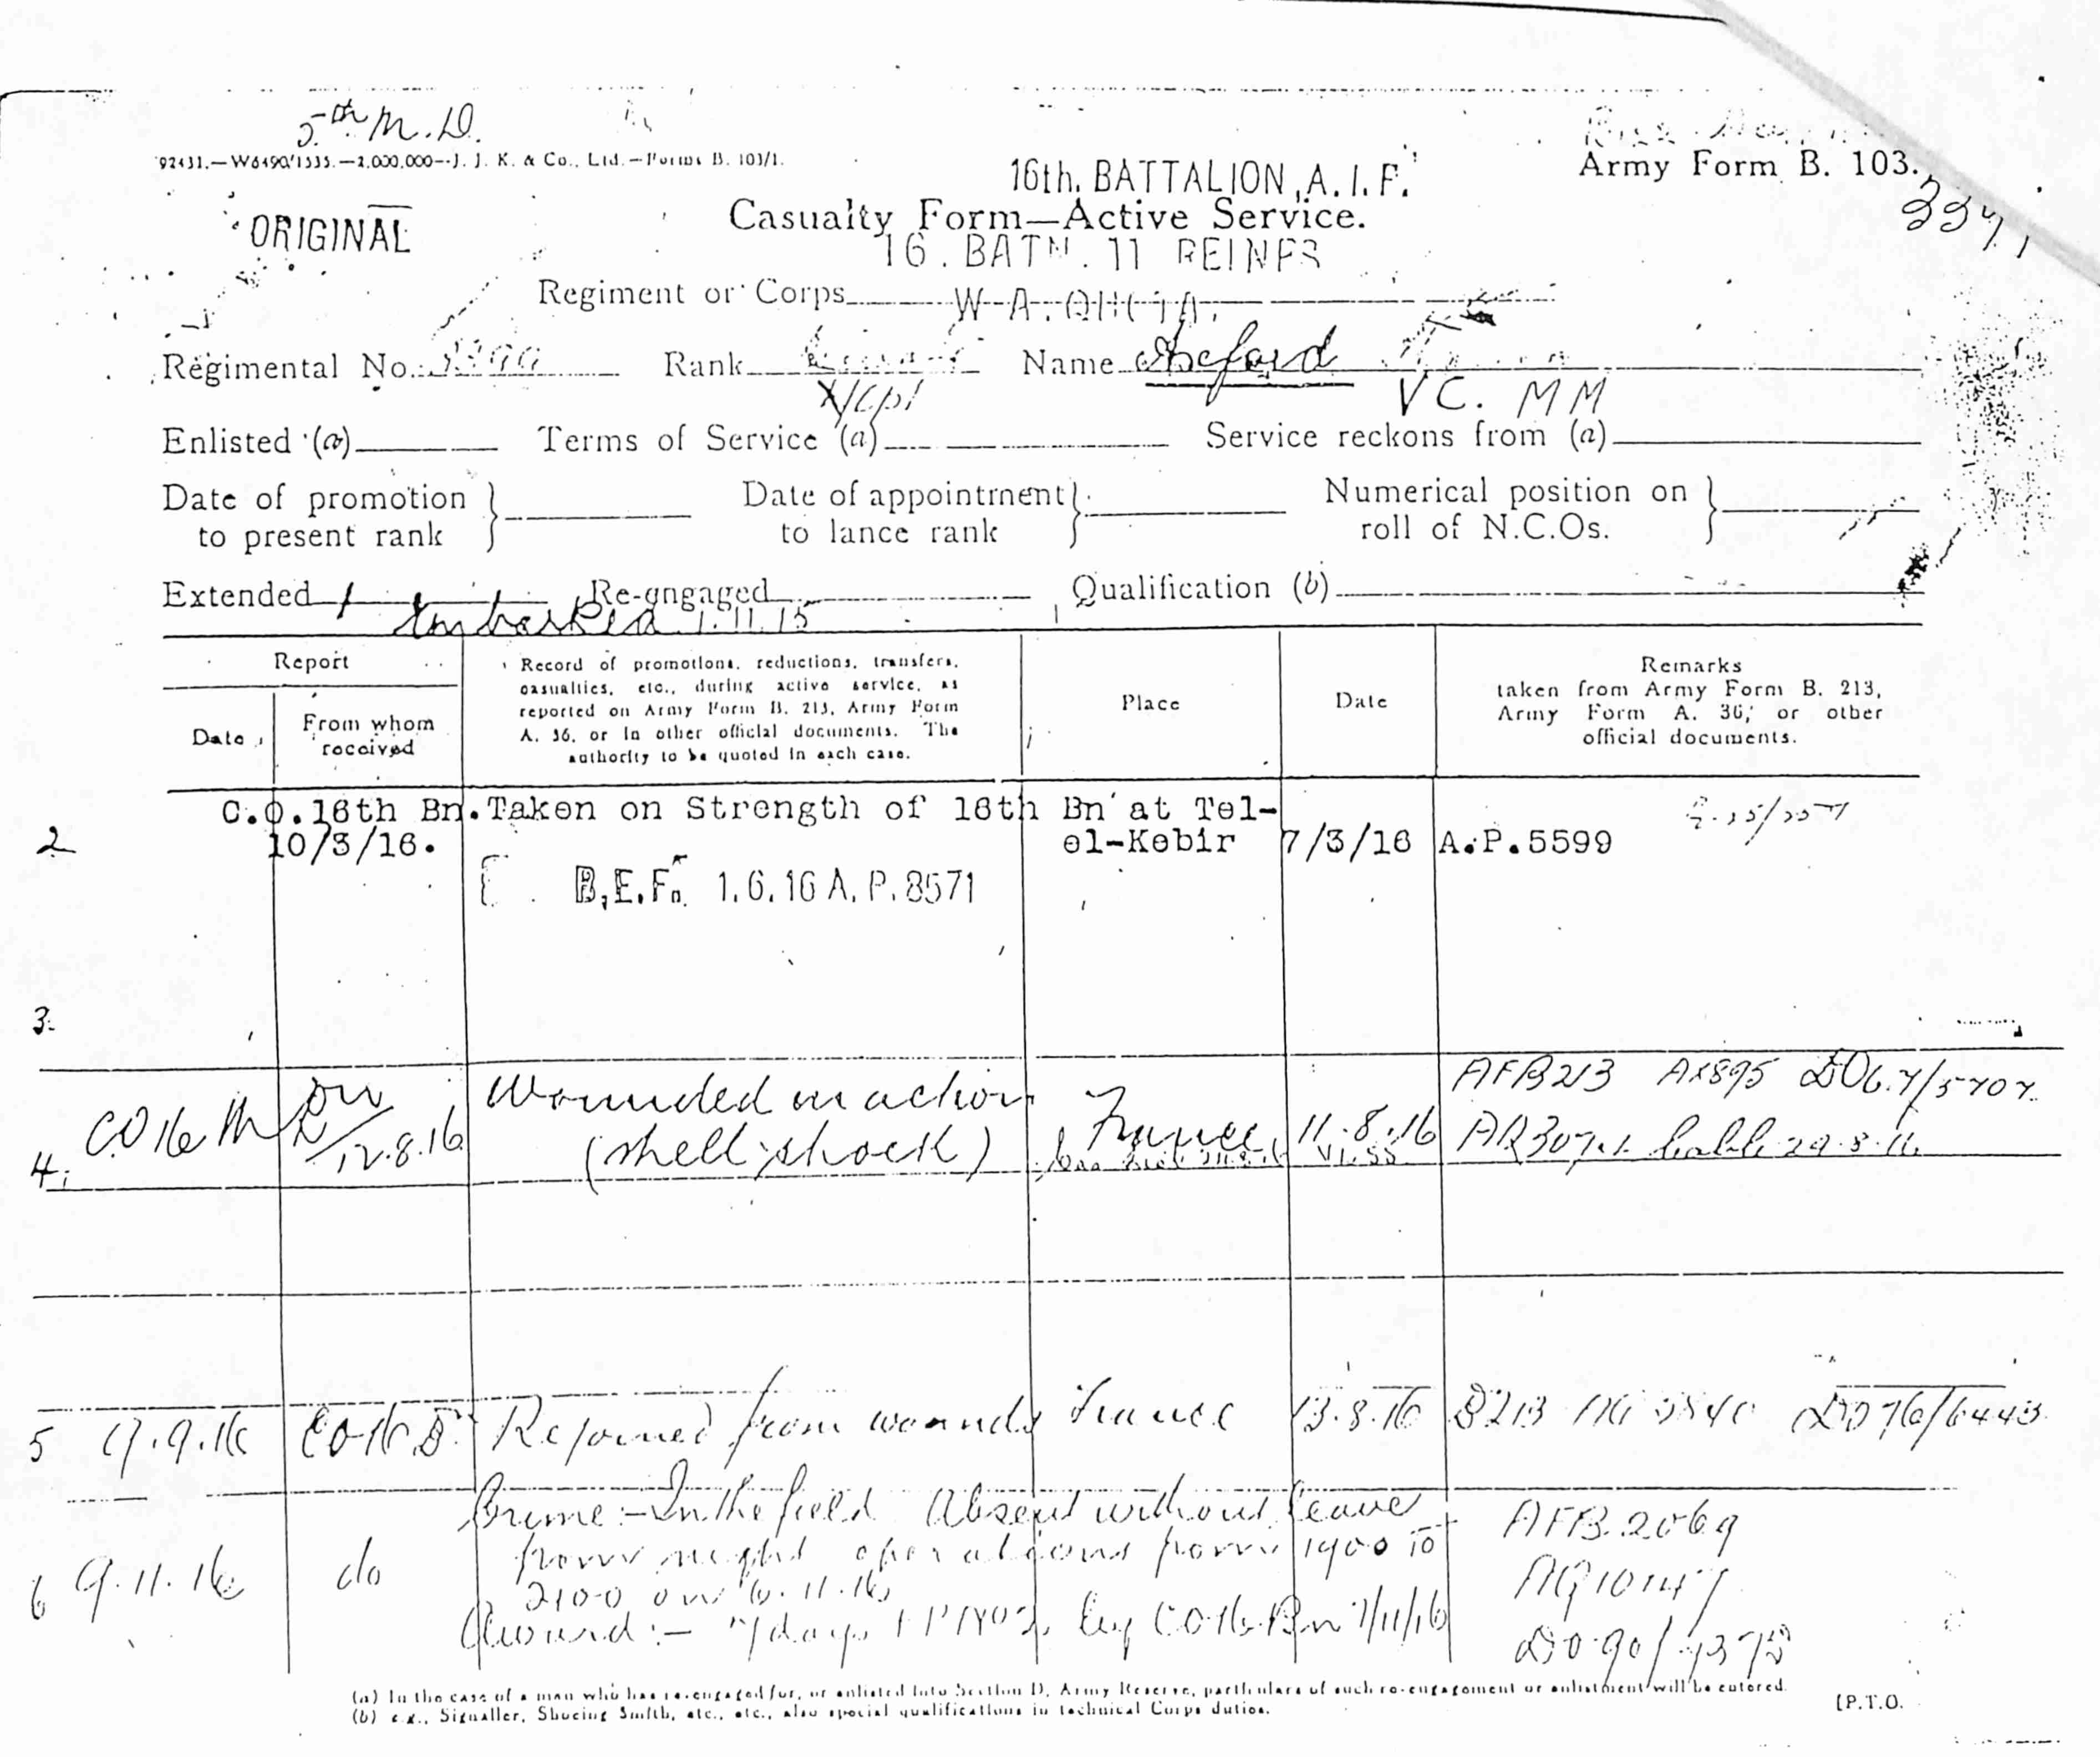 5th M.D.
92431.—W6490/1335.—2,000,000—J. J. K. & Co., Ltd.—Forms B. 103/1.
Army Form B. 103.
16th. BATTALION, A. I. F.
ORIGINAL
Casualty Form—Active Service.
16. BATN. 11 REINFS
Regiment or Corps
Regimental No. Rank Name Axford
L/Cpl VC. MM
Enlisted (a) Terms of Service (a) Service reckons from (a)
Date of promotion to present rank } Date of appointment to lance rank } Numerical position on roll of N.C.Os. }
Extended Re-engaged Qualification (b)
Embarked 1.11.15
Report
Date
From whom received
Record of promotions, reductions, transfers,
casualties, etc., during active service, as
reported on Army Form B. 213, Army Form
A. 36, or in other official documents. The
authority to be quoted in each case.
Place
Date
Remarks
taken from Army Form B. 213,
Army Form A. 36, or other
official documents.
C.O.16th Bn. Taken on Strength of 16th Bn at Tel-
2 10/3/16. el-Kebir 7/3/16 A.P.5599
B.E.F. 1.6.16 A.P.8571
3.
4. CO 16th Bn 12.8.16 Wounded in action France 11.8.16 AFB213
(shell shock)
5 9.9.16 CO 16 B Rejoined from wounds France 13.8.16 B213
6 9.11.16 do Crime:—In the field Absent without leave AFB.2069
from night operations from 1900 to
2100 on 6.11.16
Award:— 7 days FP No 2. by CO 16.Bn 7/11/16
(a) In the case of a man who has re-engaged for, or enlisted into Section D, Army Reserve, particulars of such re-engagement or enlistment will be entered.
(b) e.g., Signaller, Shoeing Smith, etc., etc., also special qualifications in technical Corps duties.
[P.T.O.